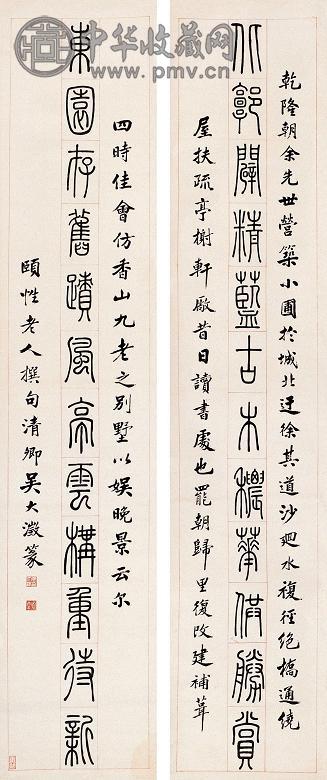 中华收藏网
www.pmv.cn
乾隆朝余先世營築小圃於城北迂徐其道沙廻水複徑絕橋通繞
北郭闢精藍古木穠華供勝賞
屋扶疏亭榭軒廠昔日讀書處也罷朝歸里復改建補葺
四時佳會仿香山九老之別墅以娛晚景云尔
東園存舊蹟風亭雲構重待新
頤性老人撰句清卿吳大澂篆